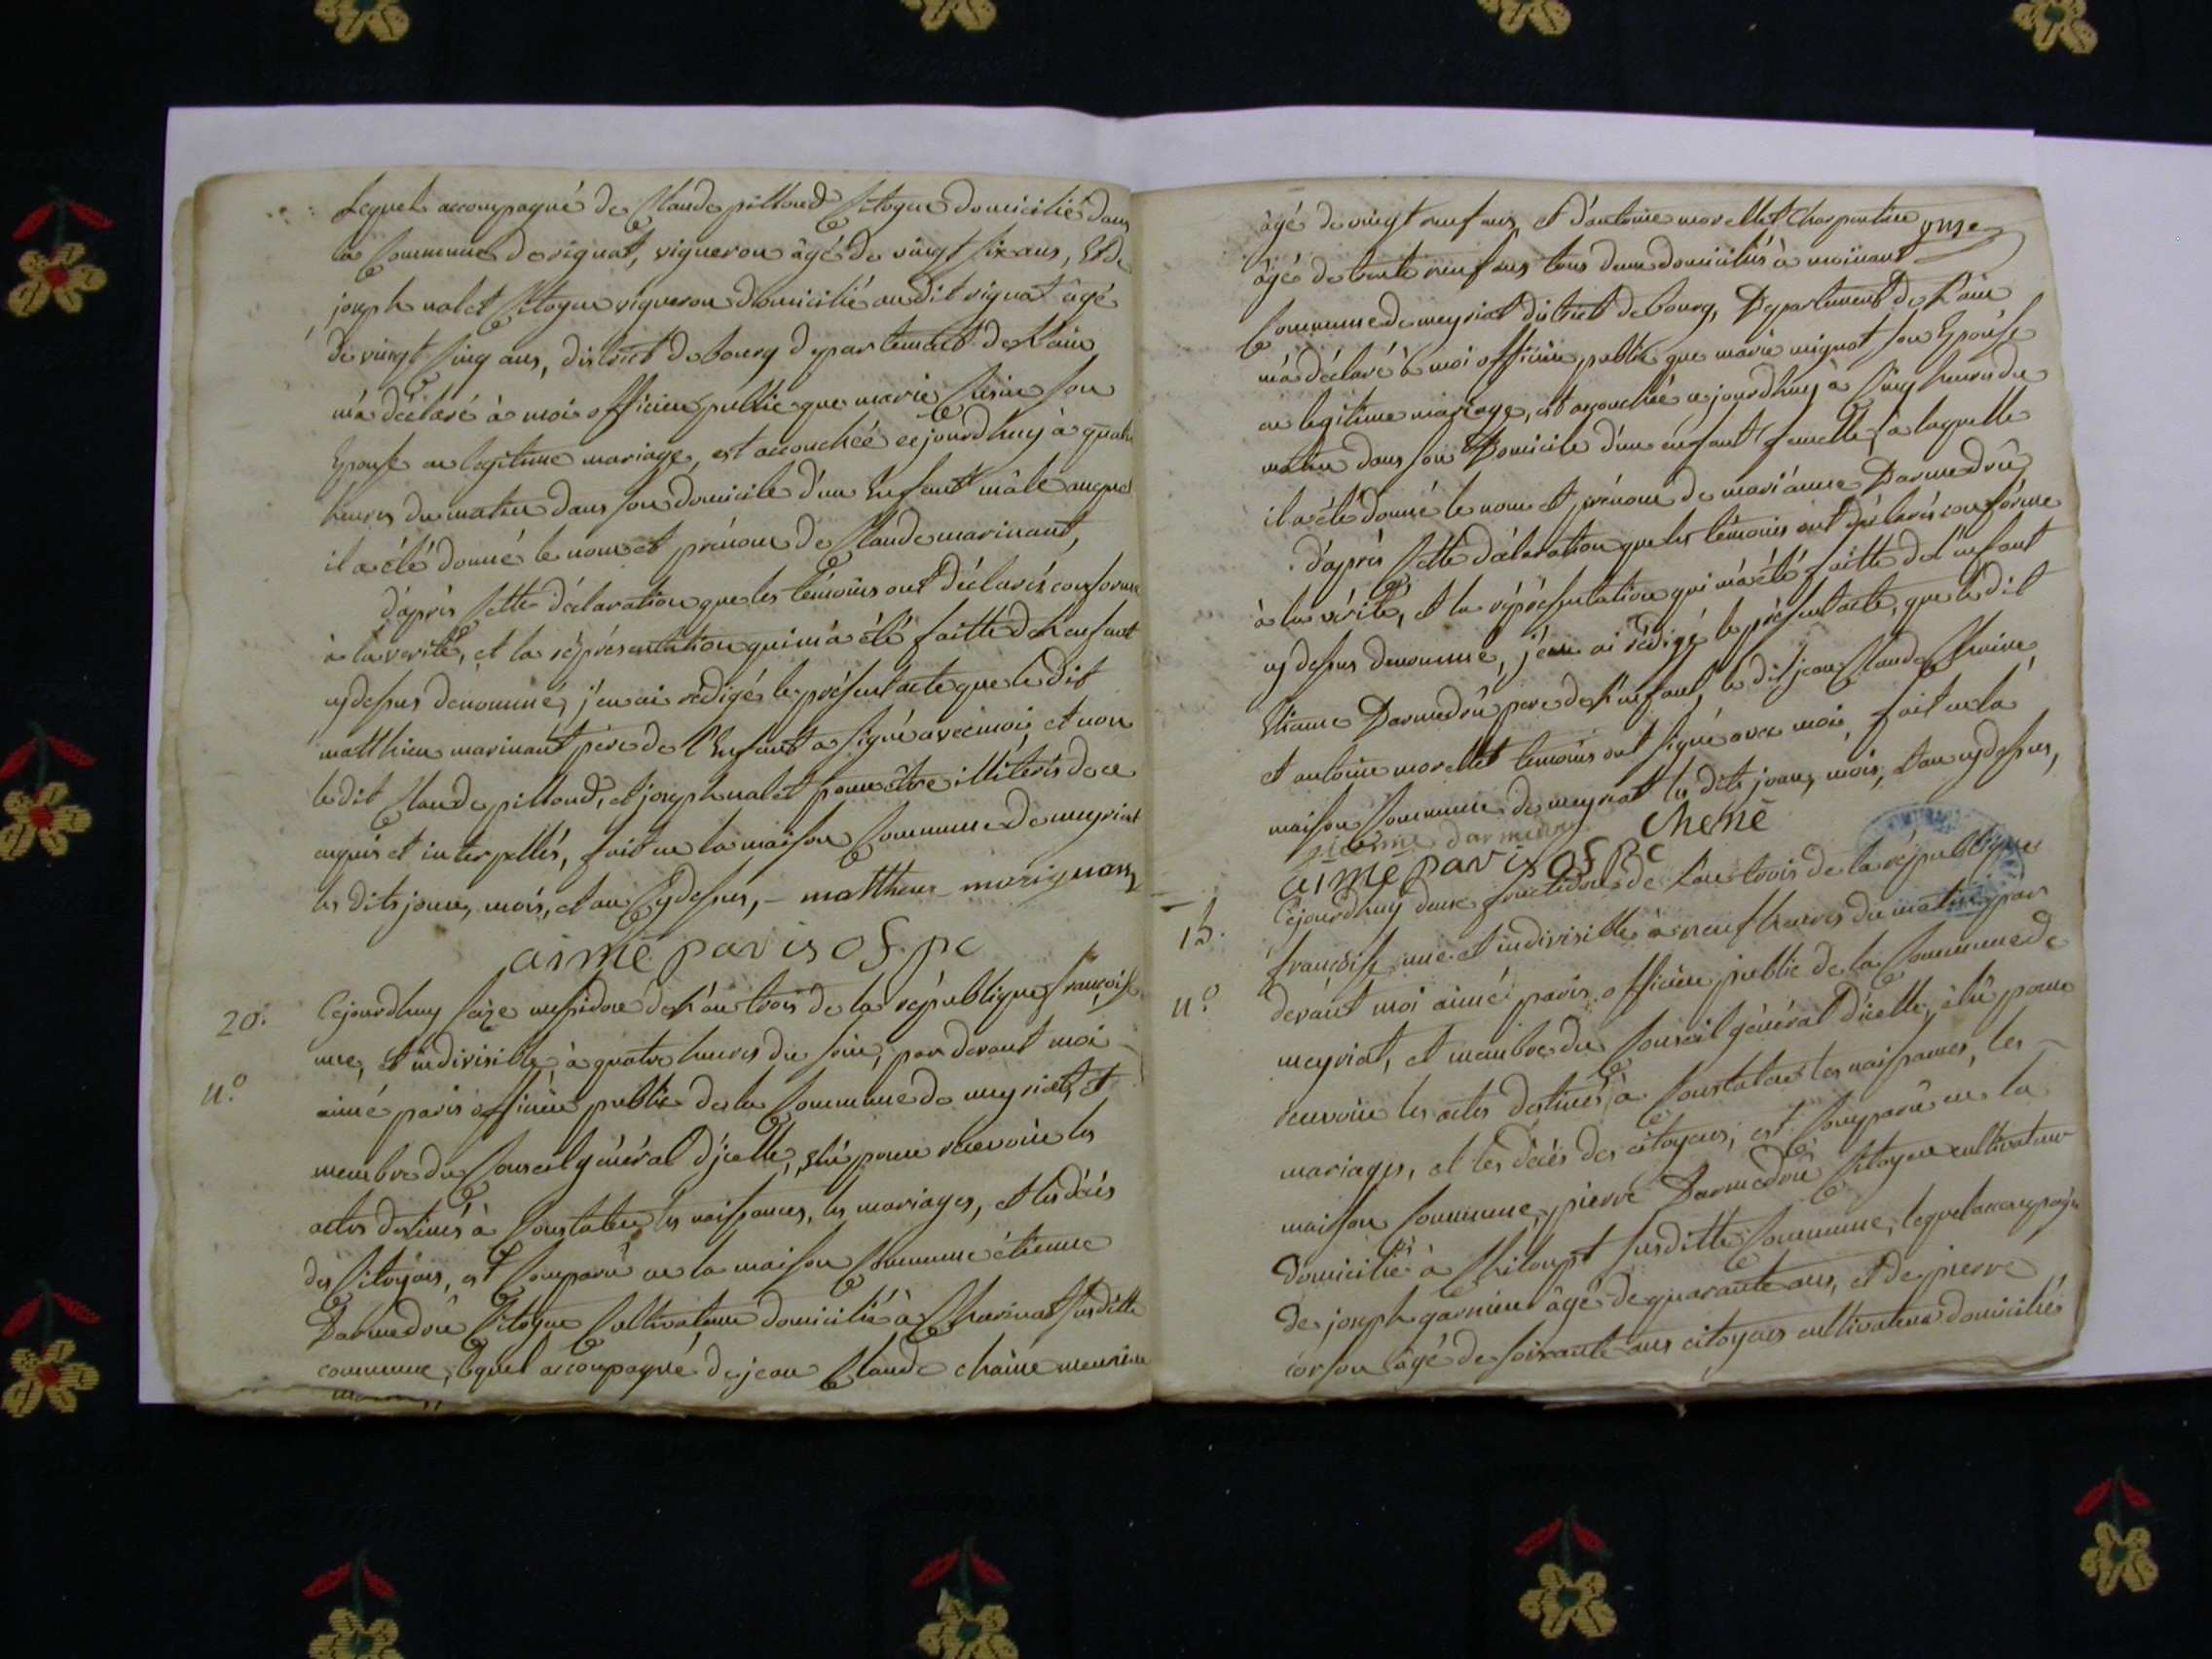 Lequel accompagné de Claude pilloud Citoyen domicilié dans
la Commune de rignat, vigneron âgé de vingt six ans, Et de
joseph nalet Citoyen vigneron domicilié au dit rignat âgé
de vingt cinq ans, district de bourg departement de L'ain
m'a déclaré à moi officier public que marie son
Epouse en legitime mariage, est accouchée cejourd'huy à quatre
heures du matin dans son domicile d'un Enfant mâle auquel
il a été donné le nom et prénom de Claude marinant,
d'après cette déclaration que les témoins ont déclarés conforme
à la verité, et la représentation qui m'a été faitte de L'enfant
cy dessus denommé, j'en ai rédigé le présent acte que le dit
matthieu marinant père de l'Enfant a signé avec moi, et non
le dit Claude pilloud, et joseph nalet pour être illitérés de ce
enquis et interpellés, fait en la maison Commune de meyriat
les dits jour, mois, et an Cy dessus, - mattheu
aimé paris of. pc
20. Cejourdhuy seize messidor de L'an trois de la république françoise
une, et indivisible, à quatre heures du soir, par devant moi
n.º aimé paris officier public de la Commune de meyriat, et
membre du Conseil général d'icelle, élu pour recevoir les
actes destinés à Constater les naissances, les mariages, et les décès
des Citoyens, est Comparu en la maison Commune étienne
Darmedru Citoyen Cultivateur domicilié à Charinas susditte
commune, lequel accompagné de jean Claude chaine meunier
âgé de vingt neuf ans, et d'antoine morellet Charpentier onze
âgé de trente neuf ans tous deux domiciliés à moinant
Commune de meyriat district de bourg, Departement de L'ain
m'a déclaré à moi officier public que marie mignot son Epouse
en legitime mariage, est accouchée cejourdhuy à Cinq heures du
matin dans son Domicile d'un enfant femelle, à laquelle
il a été donné le nom et prénom de marianne Darmedru
d'après Cette déclaration que les témoins ont déclarés conforme
à la vérité, et la réprésentation qui m'a été faitte de l'enfant
cy dessus denommé, j'en ai rédigé le présent acte, que le dit
Etienne Darmedru pere de L'enfant, le dit jean Claude Chaine,
et antoine morellet temoins ont signé avec moi, fait en la
maison Commune de meyriat les dits jour, mois, et an cy dessus,
darmedru chene
aimé paris of pc
15. Cejourdhuy deux fructidor de L'an trois de la république
françoise une et indivisible à neuf heures du matin par
n.º devant moi aimé paris officier public de la Commune de
meyriat, et membre du Conseil général d'icelle, élu pour
recevoir les actes destinés à Constater les naissances, les
mariages, et les décès des citoyens, est Comparu en la
maison Commune, pierre Darmedru Citoyen cultivateur
domicilié à Chiloupt susditte Commune, lequel accompagné
de joseph garnier âgé de quarante ans, et de pierre
corson âgé de soixante ans citoyens cultivateurs domiciliés